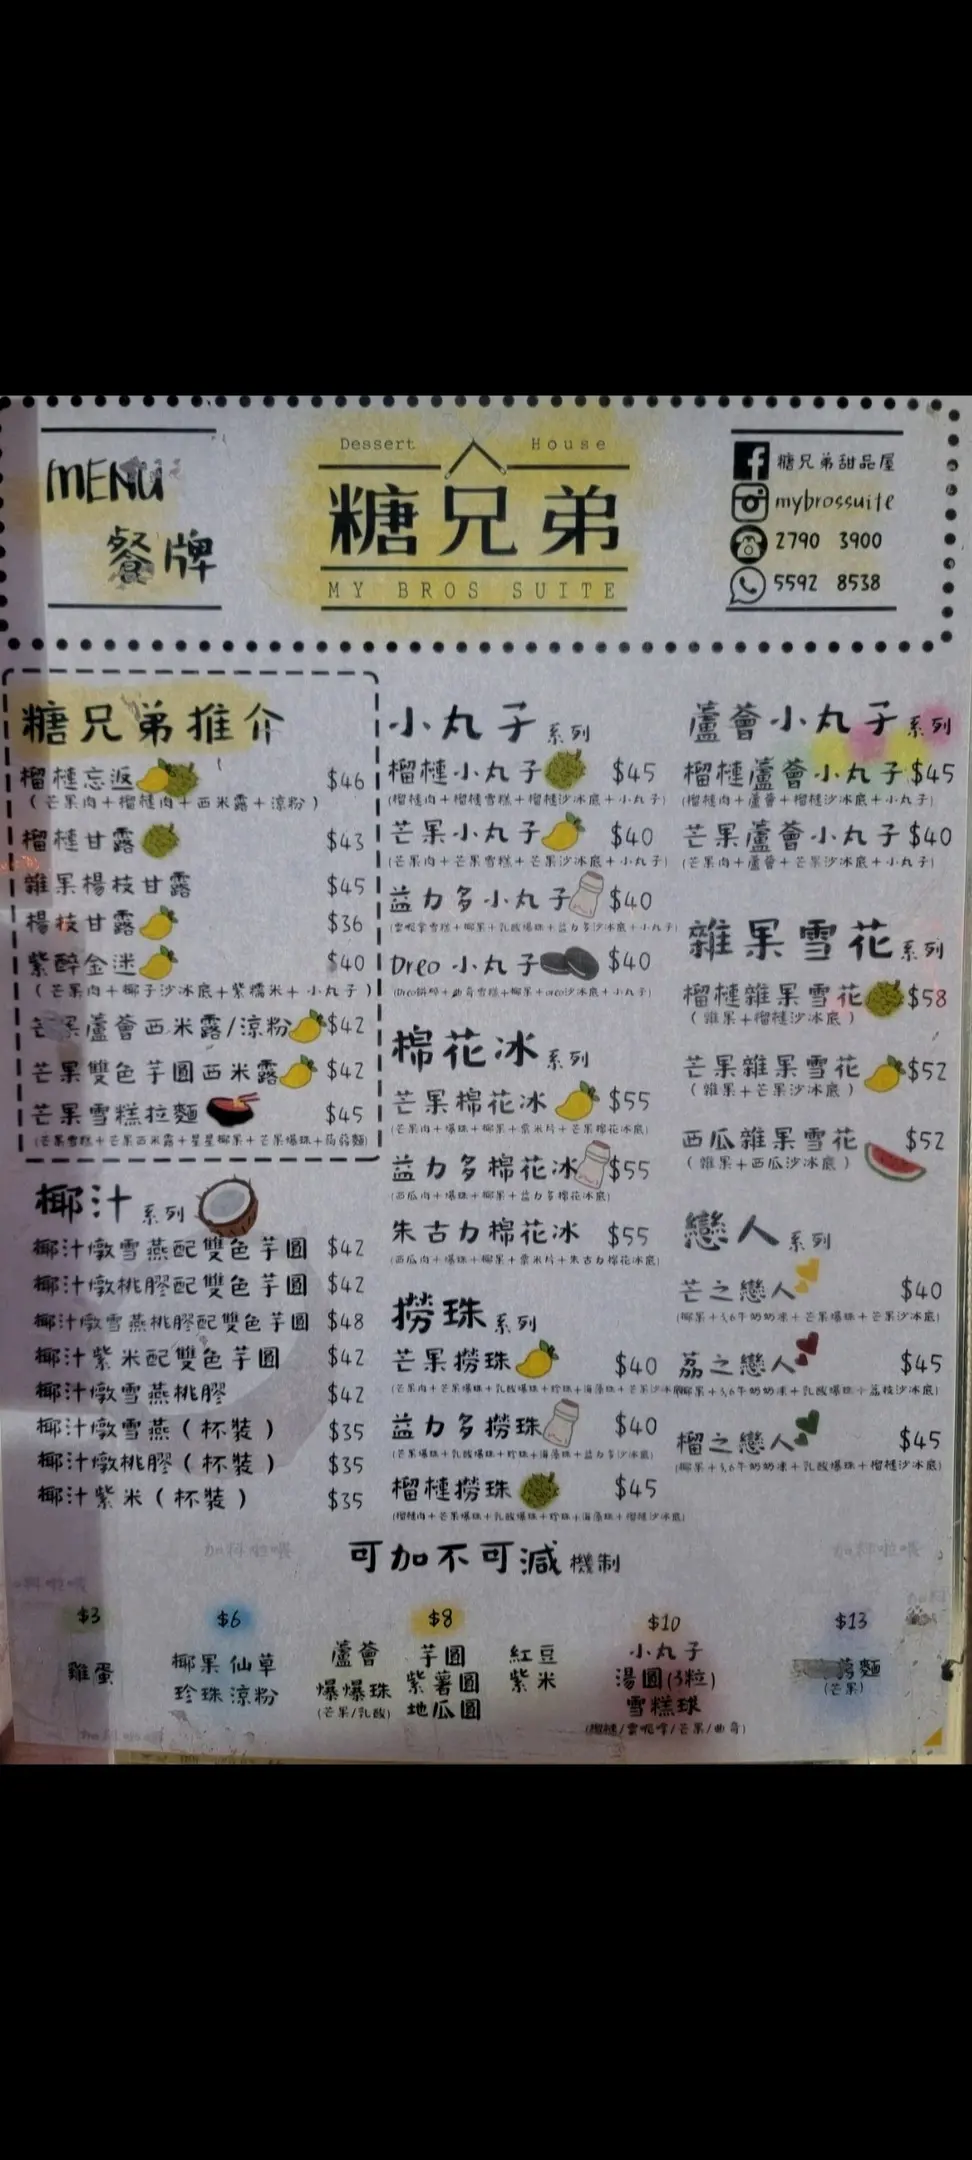 MENU
餐牌
Dessert House
糖兄弟
MY BROS SUITE
糖兄弟甜品屋
mybrossuite
2790 3900
5592 8538
糖兄弟推介
榴槤忘返 $46
(芒果肉+榴槤肉+西米露+涼粉)
榴槤甘露 $43
雜果楊枝甘露 $45
楊枝甘露 $36
紫醉金迷 $40
(芒果肉+椰子沙冰底+紫糯米+小丸子)
芒果蘆薈西米露/涼粉 $42
芒果雙色芋圓西米露 $42
芒果雪糕拉麵 $45
(芒果雪糕+芒果西米露+星星椰果+芒果爆珠+蒟蒻麵)
椰汁系列
椰汁燉雪燕配雙色芋圓 $42
椰汁燉桃膠配雙色芋圓 $42
椰汁燉雪燕桃膠配雙色芋圓 $48
椰汁紫米配雙色芋圓 $42
椰汁燉雪燕桃膠 $42
椰汁燉雪燕(杯裝) $35
椰汁燉桃膠(杯裝) $35
椰汁紫米(杯裝) $35
小丸子系列
榴槤小丸子 $45
(榴槤肉+榴槤雪糕+榴槤沙冰底+小丸子)
芒果小丸子 $40
(芒果肉+芒果雪糕+芒果沙冰底+小丸子)
益力多小丸子 $40
(雲呢拿雪糕+椰果+乳酸爆珠+益力多沙冰底+小丸子)
Oreo小丸子 $40
(Oreo餅碎+曲奇雪糕+椰果+oreo沙冰底+小丸子)
棉花冰系列
芒果棉花冰 $55
(芒果肉+爆珠+椰果+粟米片+芒果棉花冰底)
益力多棉花冰 $55
(西瓜肉+爆珠+椰果+益力多棉花冰底)
朱古力棉花冰 $55
(西瓜肉+爆珠+椰果+粟米片+朱古力棉花冰底)
撈珠系列
芒果撈珠 $40
(芒果肉+芒果爆珠+乳酸爆珠+珍珠+海藻珠+芒果沙冰底)
益力多撈珠 $40
(芒果爆珠+乳酸爆珠+珍珠+海藻珠+益力多沙冰底)
榴槤撈珠 $45
(榴槤肉+芒果爆珠+乳酸爆珠+珍珠+海藻珠+榴槤沙冰底)
蘆薈小丸子系列
榴槤蘆薈小丸子 $45
(榴槤肉+蘆薈+榴槤沙冰底+小丸子)
芒果蘆薈小丸子 $40
(芒果肉+蘆薈+芒果沙冰底+小丸子)
雜果雪花系列
榴槤雜果雪花 $58
(雜果+榴槤沙冰底)
芒果雜果雪花 $52
(雜果+芒果沙冰底)
西瓜雜果雪花 $52
(雜果+西瓜沙冰底)
戀人系列
芒之戀人 $40
(椰果+3.6牛奶奶凍+芒果爆珠+芒果沙冰底)
荔之戀人 $45
(椰果+3.6牛奶奶凍+乳酸爆珠+荔枝沙冰底)
榴之戀人 $45
(椰果+3.6牛奶奶凍+乳酸爆珠+榴槤沙冰底)
可加不可減機制
$3
雞蛋
$6
椰果 仙草
珍珠 涼粉
$8
蘆薈 芋圓 紅豆
爆爆珠 紫薯圓 紫米
(芒果/乳酸) 地瓜圓
$10
小丸子
湯圓(3粒)
雪糕球
(榴槤/雲呢嗱/芒果/曲奇)
$13
蒻麵
(芒果)